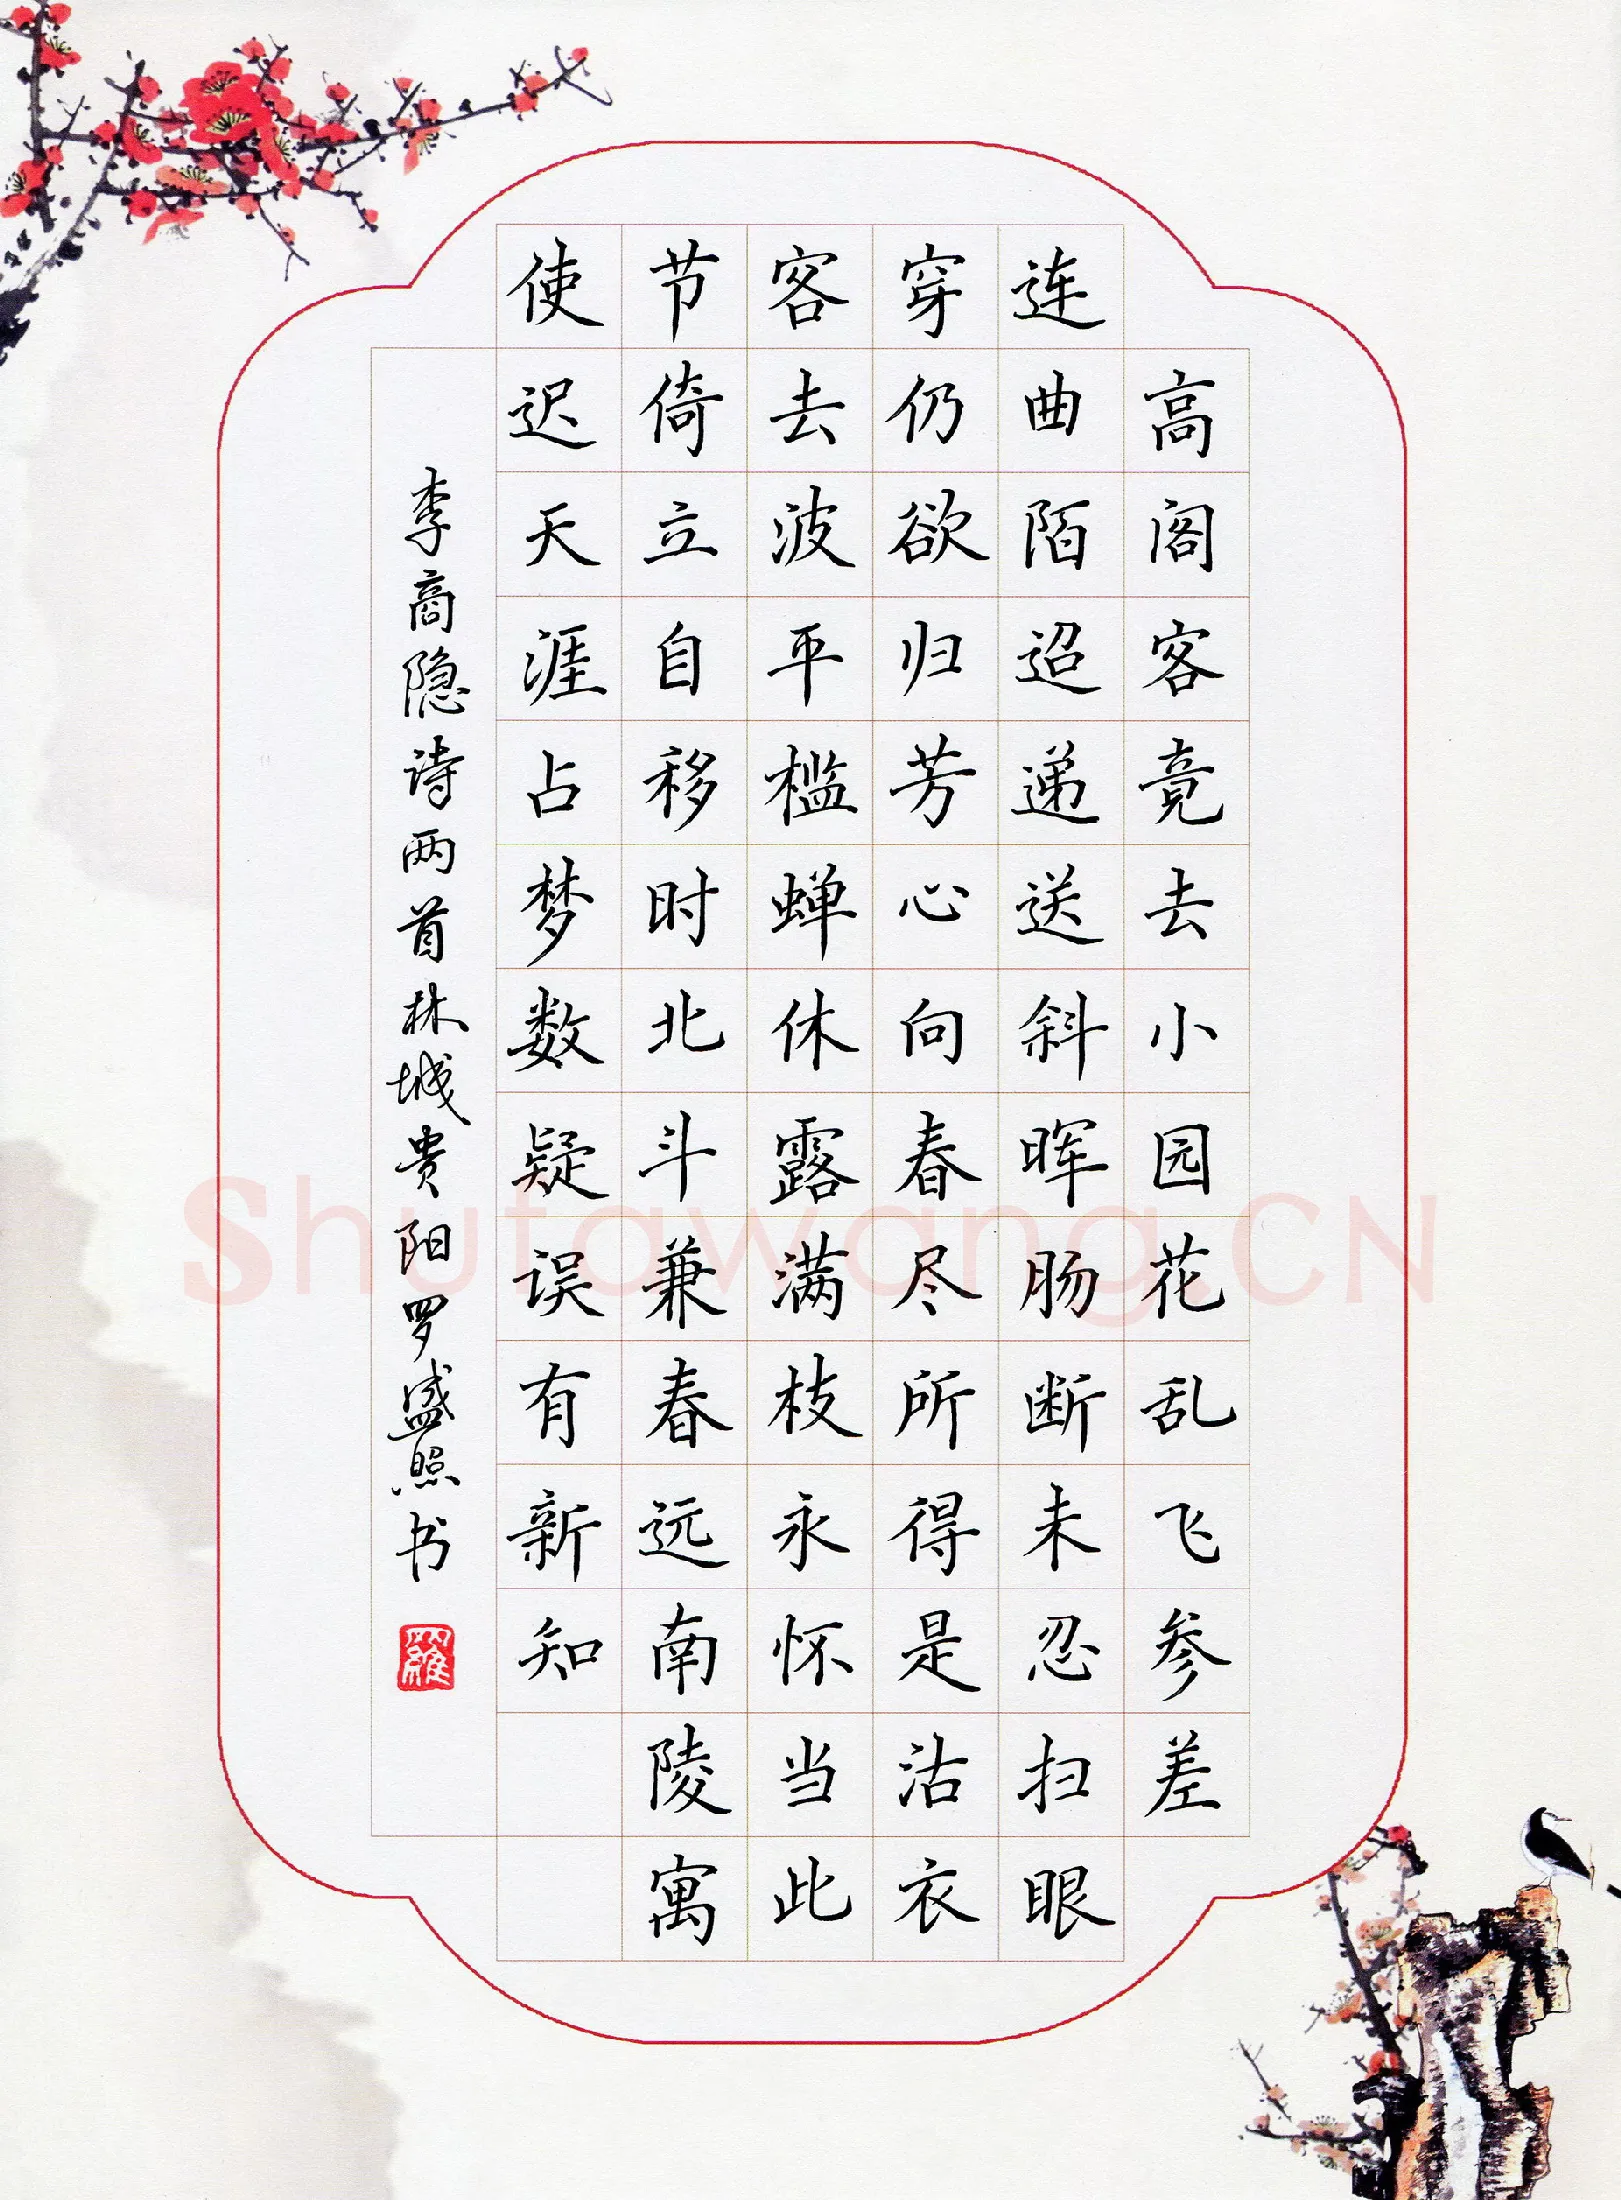 高阁客竟去小园花乱飞参差
连曲陌迢递送斜晖肠断未忍扫眼
穿仍欲归芳心向春尽所得是沾衣
客去波平槛蝉休露满枝永怀当此
节倚立自移时北斗兼春远南陵寓
使迟天涯占梦数疑误有新知
李商隐诗两首林城贵阳罗盛照书
羅
Shufawang.CN